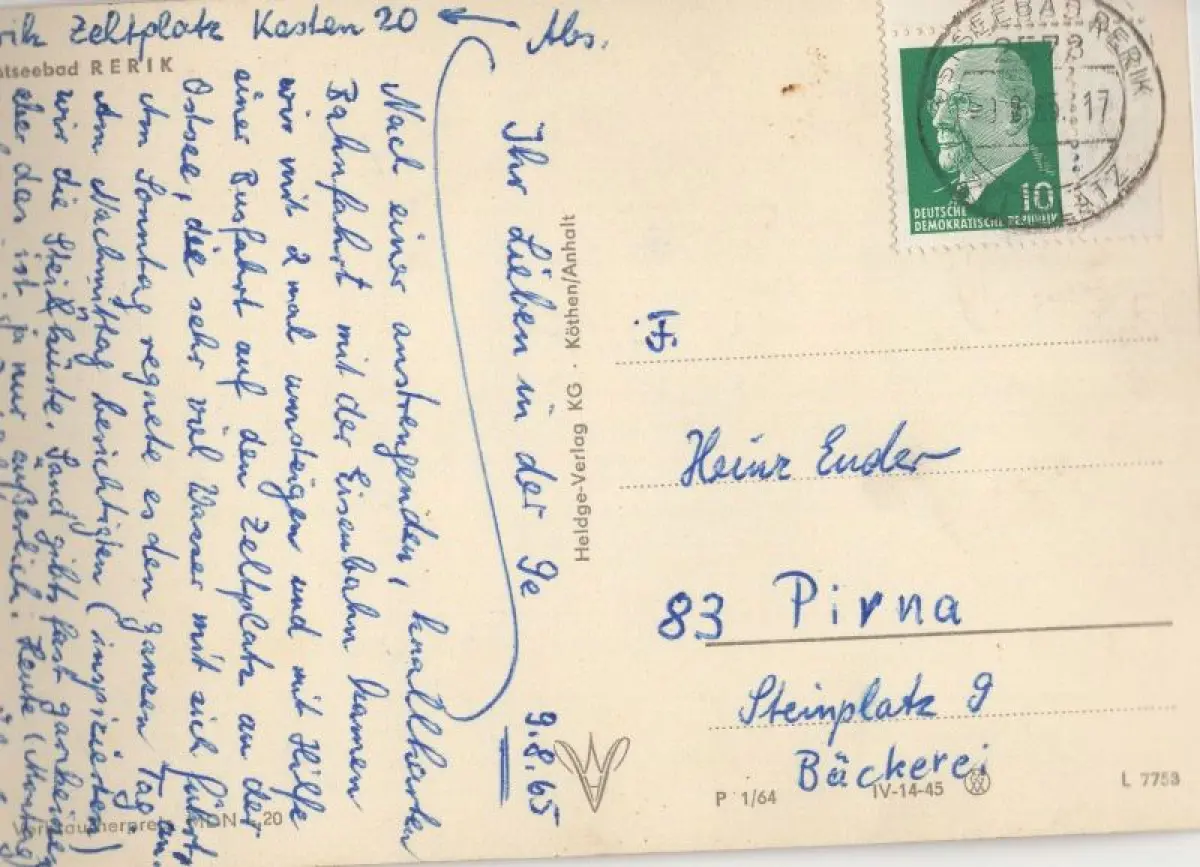 rik Zeltplatz Kasten 20
Abs.
stseebad RERIK
9.8.65
Ihr Lieben in der Ge
Nach einer anstrengenden, knallharten
Bahnfahrt mit der Eisenbahn kamen
wir mit 2 mal umsteigen und mit Hilfe
einer Busfahrt auf den Zeltplatz an der
Ostsee, die sehr viel Wasser mit sich führt,
an.
Am Sonntag regnete es den ganzen Tag
Am Nachmittag besichtigten (inspizierten)
wir die Steilküste. Sand gibts fast garkeinen
aber das ist ja nur äußerlich. Heute (Montag)
Verbraucherpreis MDN -,20
Heldge-Verlag KG · Köthen/Anhalt
OSTSEEBAD RERIK
2573
17
10
DEUTSCHE
DEMOKRATISCHE REPUBLIK
Heinz Ender
83 Pirna
Steinplatz 9
Bäckerei
P 1/64
IV-14-45
L 7753